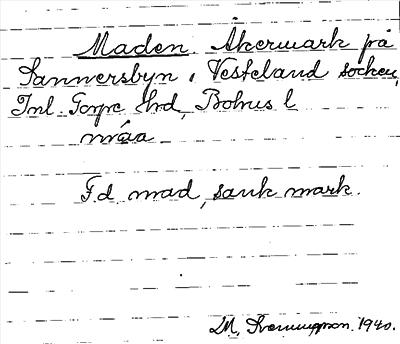 Maden Åkermark på
Sannersbyn i Vesteland socken,
Inl. Torpe hrd, Bohus l
måa
F.d. mad, sank mark.
M. 1940.